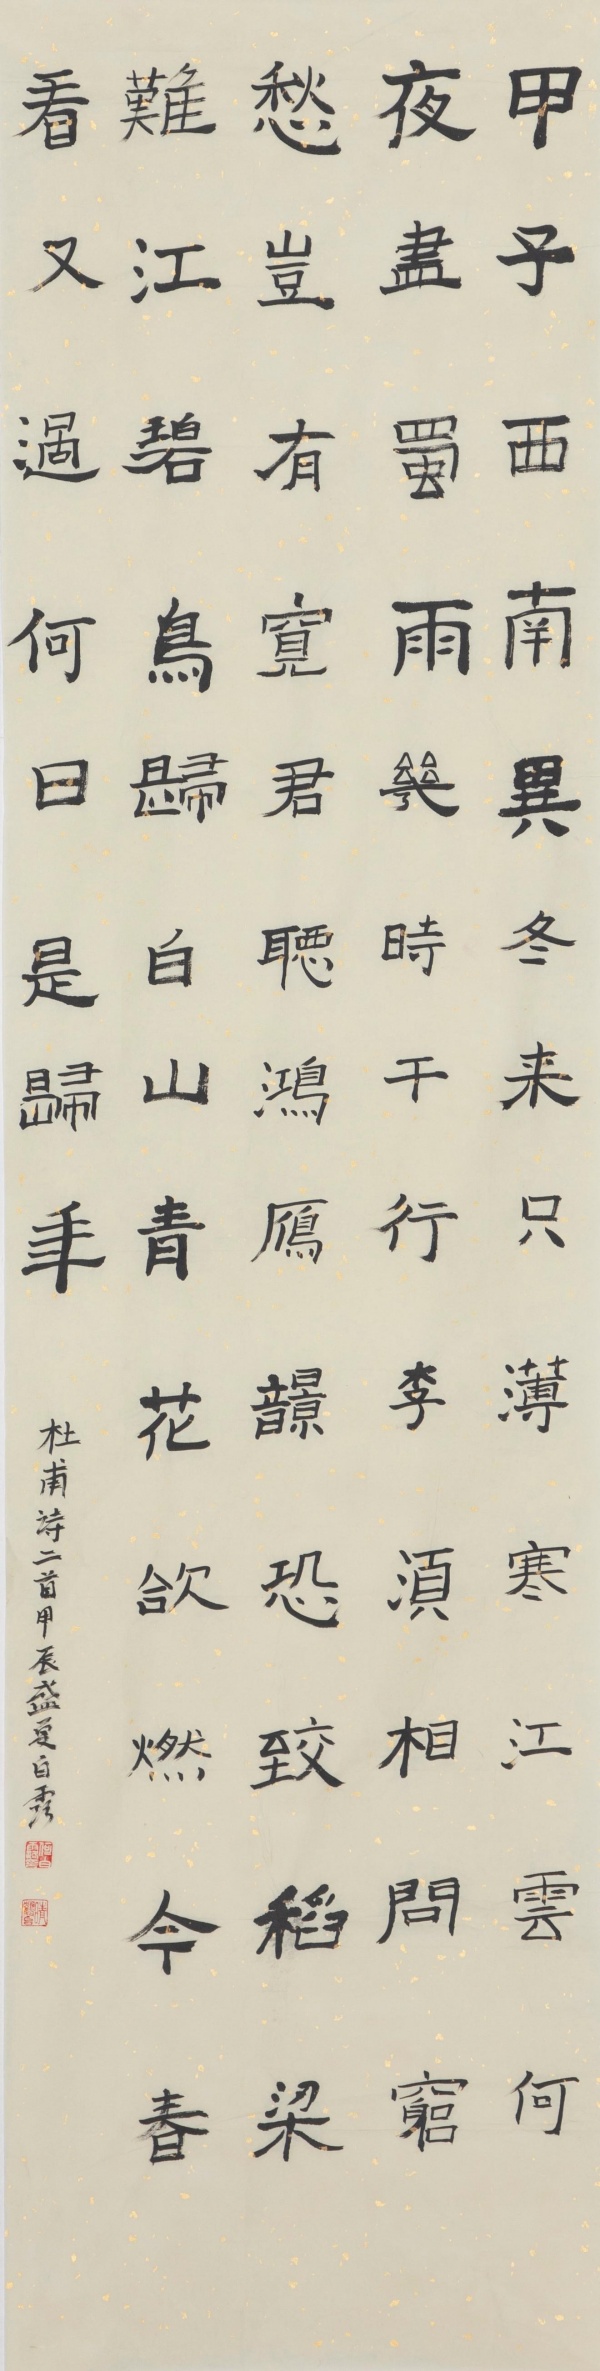 甲子西南異冬来只薄寒江雲何
夜盡蜀雨幾時干行李湏相問窮
愁豈有寬君聽鴻鴈響恐致稻梁
難江碧鳥歸白山青花欲燃今春
看又過何日是歸年
杜甫詩二首甲辰盛夏白露